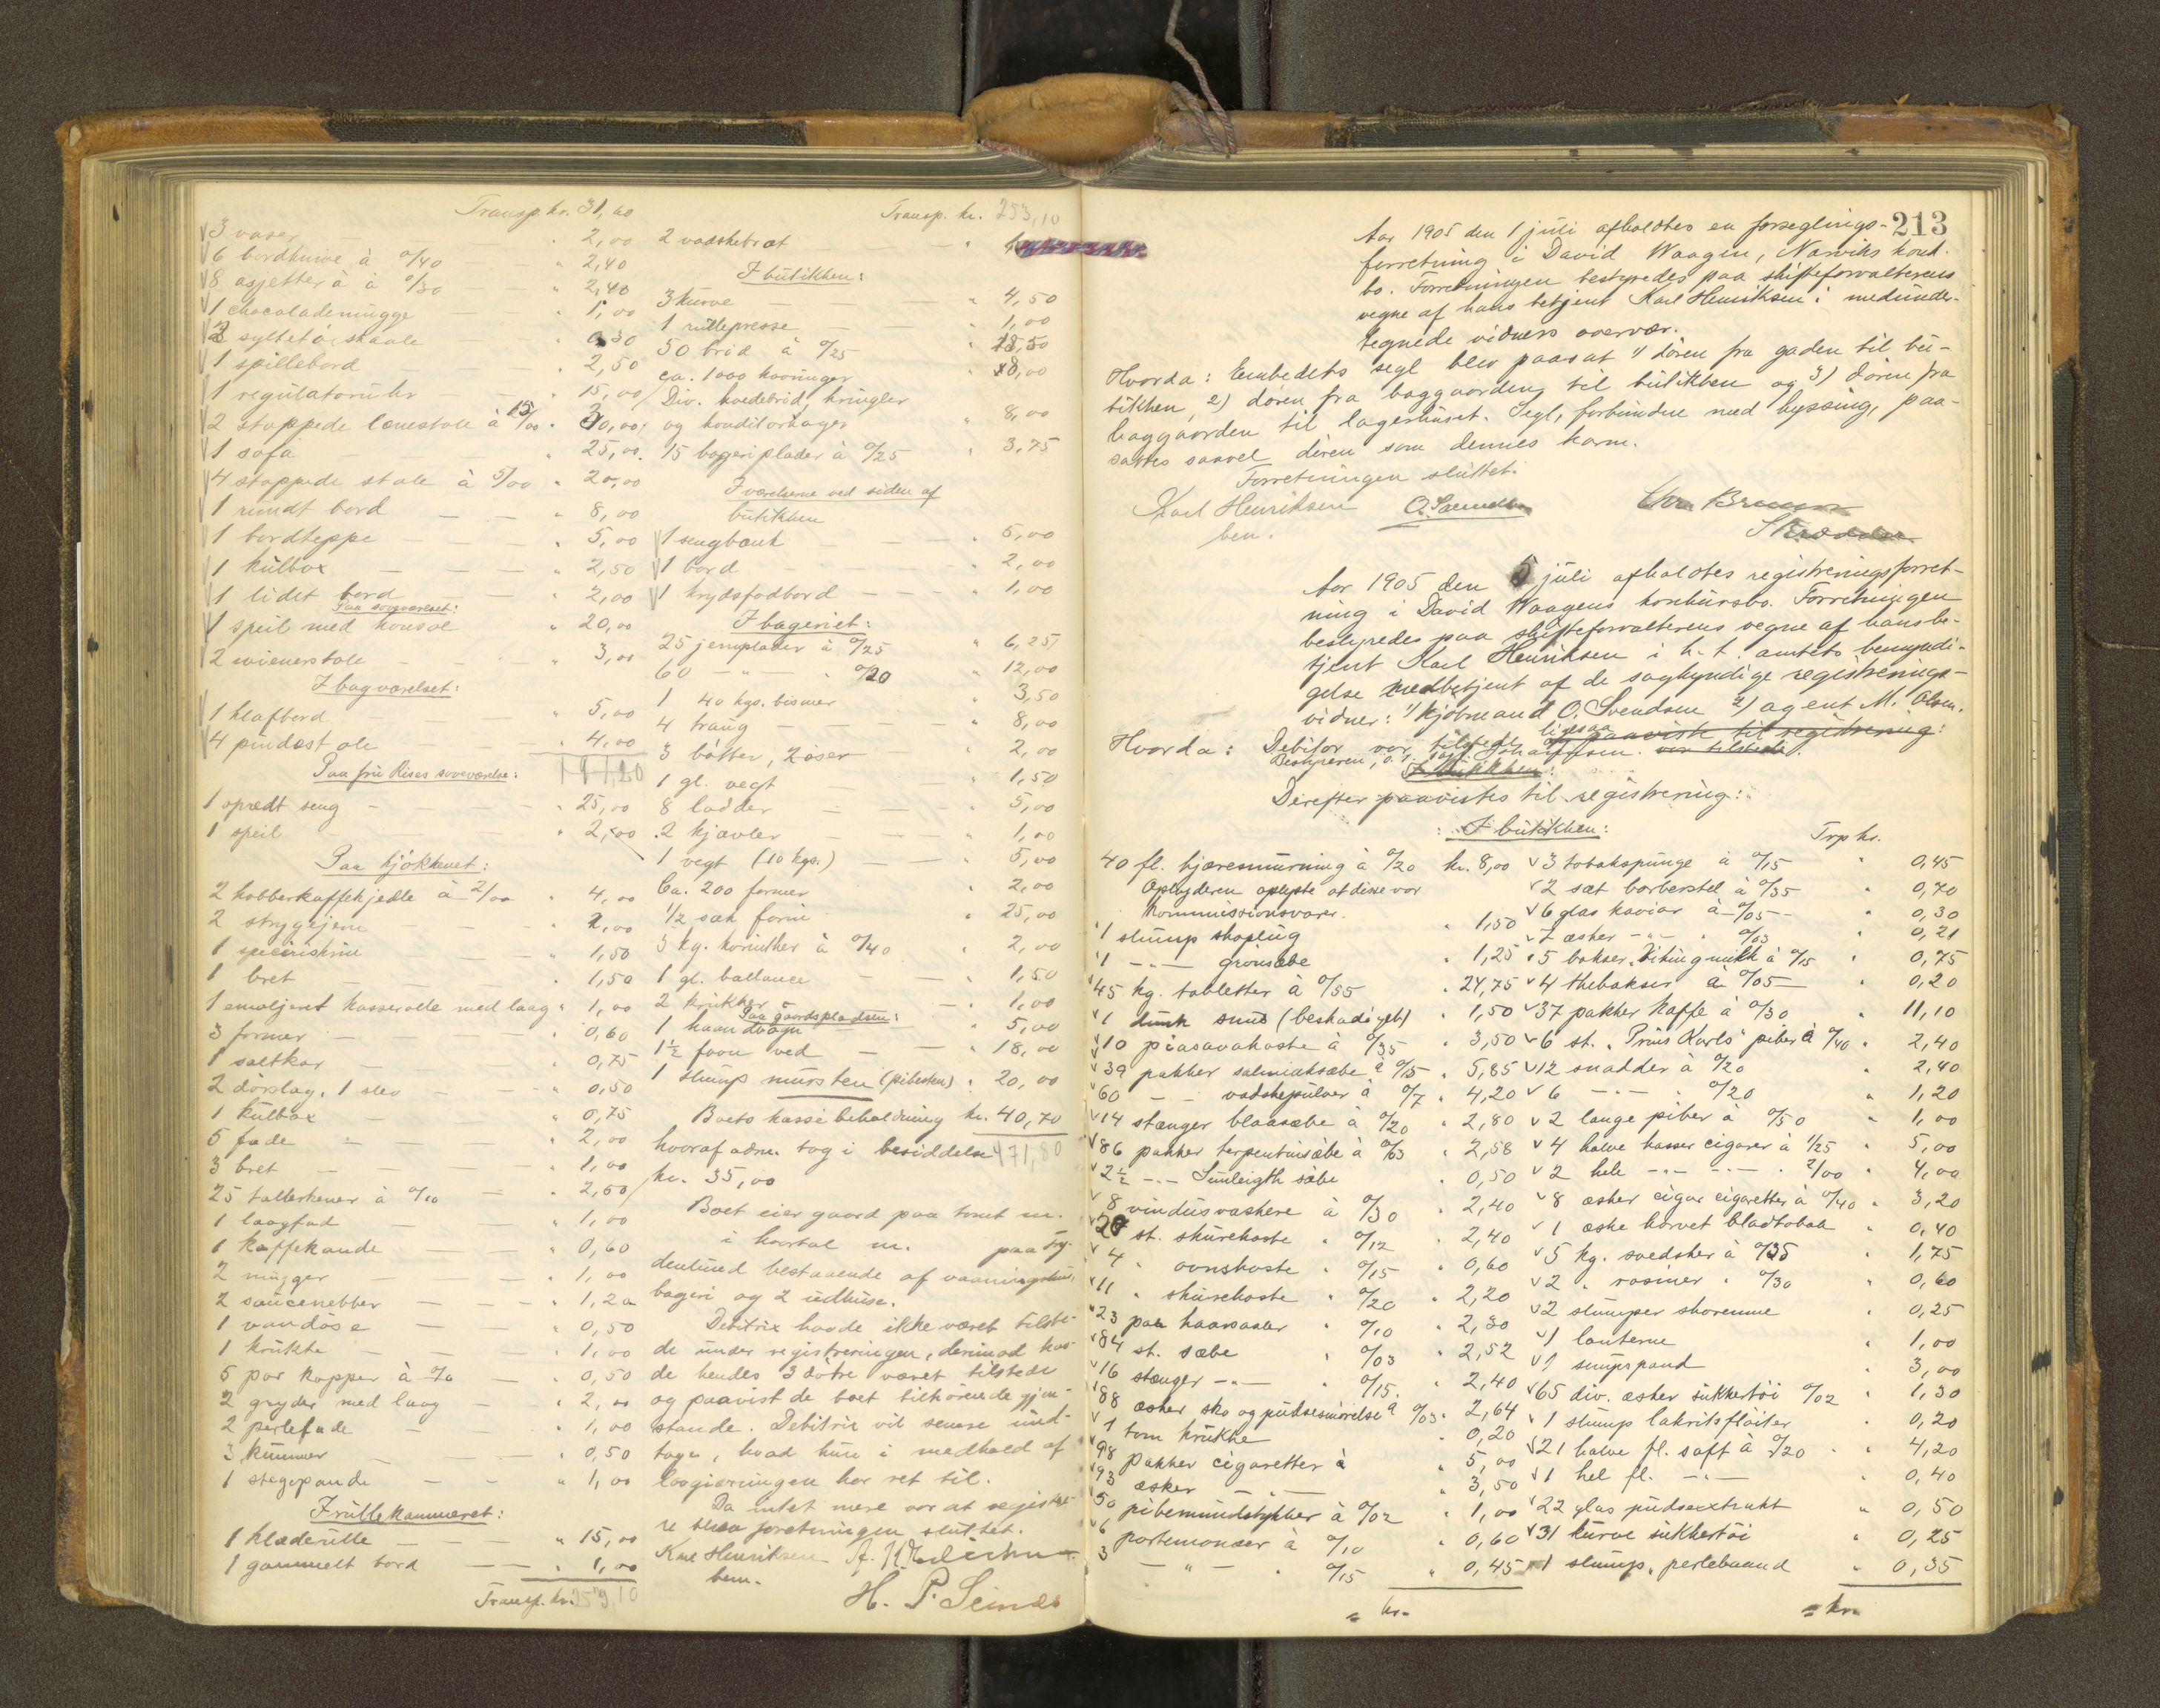 Transp. kr. 31,60
3 vaser " 2,00
6 bordknive à 0/40 — " 2,40
8 asjetter à 0/30 — " 2,40
1 chocolademugge — " 1,00
2 syltetøiskaale " 0,30
1 spillebord — " 2,50
1 regulatoruhr — " 15,00
2 stoppede lænestole à 15/00 " 30,00
1 sofa — " 25,00
4 stoppede stole à 5/00 " 20,00
1 rundt bord — " 8,00
1 bordteppe — " 5,00
1 kulbox — " 2,50
1 lidet bord — " 2,00
Paa soveværelset:
1 speil med konsol " 20,00
2 wienerstole — " 3,00
I bagværelset:
1 klafbord — " 5,00
4 pindestole " 4,00
Paa fru Rises soveværelse:
1 opredt seng — " 25,00
1 speil " 2,00
Paa kjøkkenet:
2 kobberkaffekjedle à 2/00 " 4,00
2 strygejern — " 2,00
1 speceriskrin — " 1,50
1 bret — " 1,50
1 emaljeret kasserolle med laag " 1,00
3 former — " 0,60
1 saltkar — " 0,75
2 dørslag, 1 slev — " 0,50
1 kulbox — " 0,75
5 fade — " 2,00
3 bret — " 1,00
25 tallerkener à 0/10 — " 2,50
1 laagfad — " 1,00
1 kaffekande — " 0,60
2 mugger — " 1,00
2 saucenebber — " 1,20
1 vandøse — " 0,50
1 krukke — " 1,00
5 par kopper à 0/10 — " 0,50
2 gryder med laag — " 2,00
2 perlefade — " 1,00
3 kummer — " 0,50
1 stegepande — " 1,00
I rullekammeret:
1 klæderulle — " 15,00
1 gammelt bord — " 1,00
Transp. kr. 253,10
Transp. kr. 253,10
2 vadskebræt — "
I butikken:
3 kurve — " 4,50
1 rullepresse — " 1,00
50 brød à 0/25 " 12,50
ca. 1000 kavringer " 8,00
Div. hvedebrød, kringler
og konditorkager " 8,00
15 bageriplader à 0/25 " 3,75
I værelserne ved siden af
butikken
1 sengbænk — " 5,00
1 bord — " 2,00
1 krydsfodbord — " 1,00
I bageriet:
25 jernplader à 0/25 " 6,25
60 — " — " 0/20 " 12,00
1 40 kgs. bismer " 3,50
4 traug — " 8,00
3 bøtter, 2 øser " 2,00
1 gl. vegt — " 1,50
8 ladder — " 5,00
2 kjævler — " 1,00
1 vegt (10 kgs.) — " 5,00
Ca. 200 former " 2,00
1/2 sæk farin " 25,00
5 kg. korinther à 0/40 " 2,00
1 gl. ballance — " 1,50
2 krukker — " 1,00
Paa gaardspladsen:
1 haandvogn " 5,00
1 1/2 favn ved — " 18,00
1 slump mursten (pibesten) " 20,00
Boets kassebeholdning kr. 40,70
hvoraf adm. tog i besiddelse 471,80
kr. 35,00
Boet eier gaard paa tomt nr.
i kvartal nr. paa Fry-
denlund bestaaende af vaaningshus,
bageri og 2 udhuse.
Debitrix havde ikke været tilste-
de under registreringen, derimod hav-
de hendes 3 døtre været tilstede
og paavist de boet tilhørende gjen-
stande. Debitrix vil senere und-
tage, hvad hun i medhold af
lovgivningen har ret til.
Da intet mere var at registre-
re blev forretningen sluttet.
Karl Henriksen
bem.
H. P. Seines
213
Aar 1905 den 1 juli afholdtes en forseglings-
forretning i David Waagen, Narviks konk.
bo. Forretningen bestyredes paa skifteforvalterens
vegne af hans betjent Karl Henriksen i medunder-
tegnede vidners overvær.
Hvorda: Embedets segl blev paasat 1) døren fra gaden til bu-
tikken, 2) døren fra baggaarden til butikken og 3) døren fra
baggaarden til lagerhuset. Segl, forbundne med hyssing, paa-
sattes saavel døren som dennes karm.
Forretningen sluttet.
Karl Henriksen
bem.
Aar 1905 den 5 juli afholdtes registreringsforret-
ning i David Waagens konkursbo. Forretningen
bestyredes paa skifteforvalterens vegne af hans be-
tjent Karl Henriksen i h. t. amtets bemyndi-
gelse medbetjent af de sagkyndige registrerings-
vidner: 1) kjøbmand O. Svendsen 2) agent M. Olsen.
Hvorda: Debitor var tilstede ligesaa paaviste til registrering:
Bestyreren, o.r. sagf. Johannesen. var tilstede.
I butikken:
Derefter paavistes til registrering:
I butikken:
40 fl. kjærnemurning à 0/20 kr. 8,00
Opbyderen oplyste at disse var
kommissionsvarer.
1 slump skoplug " 1,50
1 —"— grønsæbe " 1,25
45 kg. tabletter à 0/55 " 24,75
1 dunk snus (beskadiget) " 1,50
10 piasavakoste à 0/35 " 3,50
39 pakker salmiaksæbe à 0/15 " 5,85
60 — — vadskepulver à 0/7 " 4,20
14 stænger blaasæbe à 0/20 " 2,80
86 pakker terpentinsæbe à 0/03 " 2,58
2 1/2 —"— Sunleigth sæbe " 0,50
8 vinduvaskere à 0/30 " 2,40
20 st. skurekoste " 0/12 " 2,40
4 " ovnskoste " 0/15 " 0,60
11 " skurekoste " 0/20 " 2,20
23 par haarsaaler " 0/10 " 2,30
84 st. sæbe " 0/03 " 2,52
16 stænger —"— " 0/15 " 2,40
88 æsker sko og pudsesmørelse à 0/03 " 2,64
1 tom krukke " 0,20
98 pakker cigaretter à " 5,00
93 æsker —"— " 3,50
50 pibemundstykker à 0/02 " 1,00
6 portemonæer à 0/10 " 0,60
3 — " — " 0/15 " 0,45
= kr.
Trp kr.
3 tobakspunge à 0/15 " 0,45
2 sæt barberstel à 0/35 " 0,70
6 glas kaviar à 0/05 — " 0,30
7 æsker —"— " 0/03 " 0,21
5 bokser Vikingmilk à 0/15 " 0,75
4 thebokser à 0/05 — " 0,20
37 pakker kaffe à 0/30 " 11,10
6 st. "Prins Karls" piber à 0/40 " 2,40
12 snadder à 0/20 " 2,40
6 —"— " 0/20 " 1,20
2 lange piber à 0/50 " 1,00
4 halve kasser cigarer à 1/25 " 5,00
2 hele —"— —"— " 2/00 " 4,00
8 æsker cigar cigaretter à 0/40 " 3,20
1 æske karvet bladtobak " 0,40
5 kg. svedsker à 0/35 " 1,75
2 " rosiner " 0/30 " 0,60
2 slumper skoremme " 0,25
1 lanterne " 1,00
1 sengspand " 3,00
65 div. æsker sukkertøi 0/02 " 1,30
1 slump lakritsfløiter " 0,20
21 halve fl. saft à 0/20 " 4,20
1 hel fl. —"— " 0,40
22 glas pudsextrakt " 0,50
31 kurve sukkertøi " 0,25
1 slump perlebaand " 0,35
= kr.